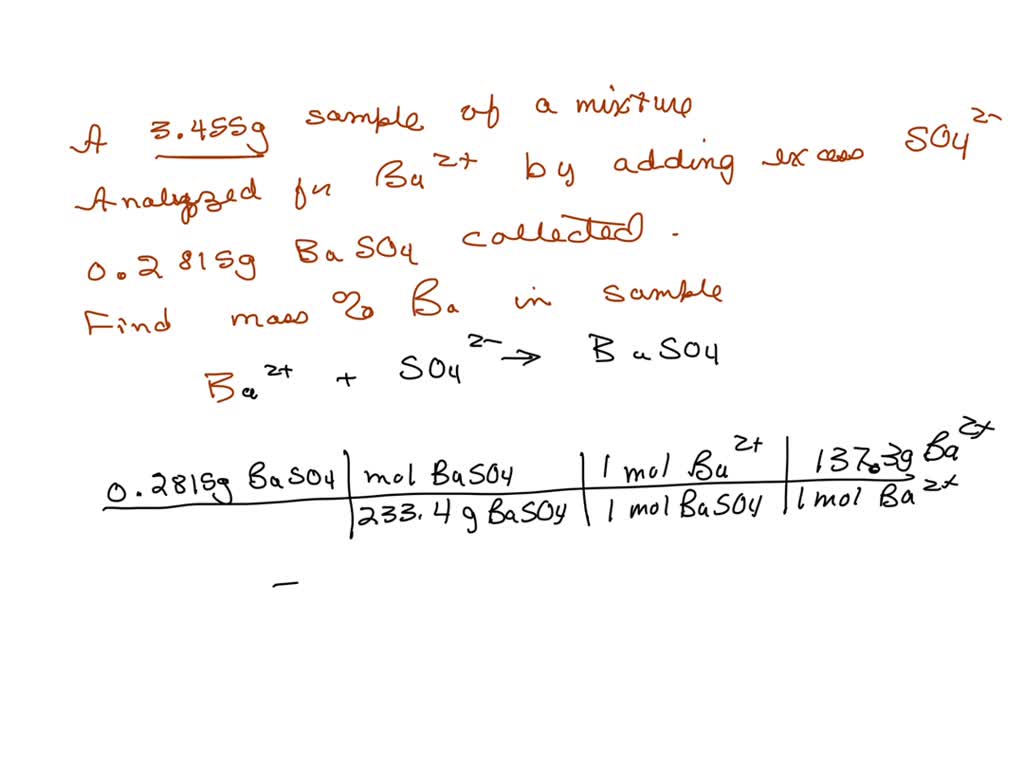 A 3.455g sample of a mixture
Analyzed for Ba²⁺ by adding excess SO4²⁻
0.2815g BaSO4 collected.
Find mass % Ba in sample
Ba²⁺ + SO4²⁻ → BaSO4
0.2815g BaSO4 | mol BaSO4 | 1 mol Ba²⁺ | 137.3g Ba²⁺
233.4 g BaSO4 | 1 mol BaSO4 | 1 mol Ba²⁺
=